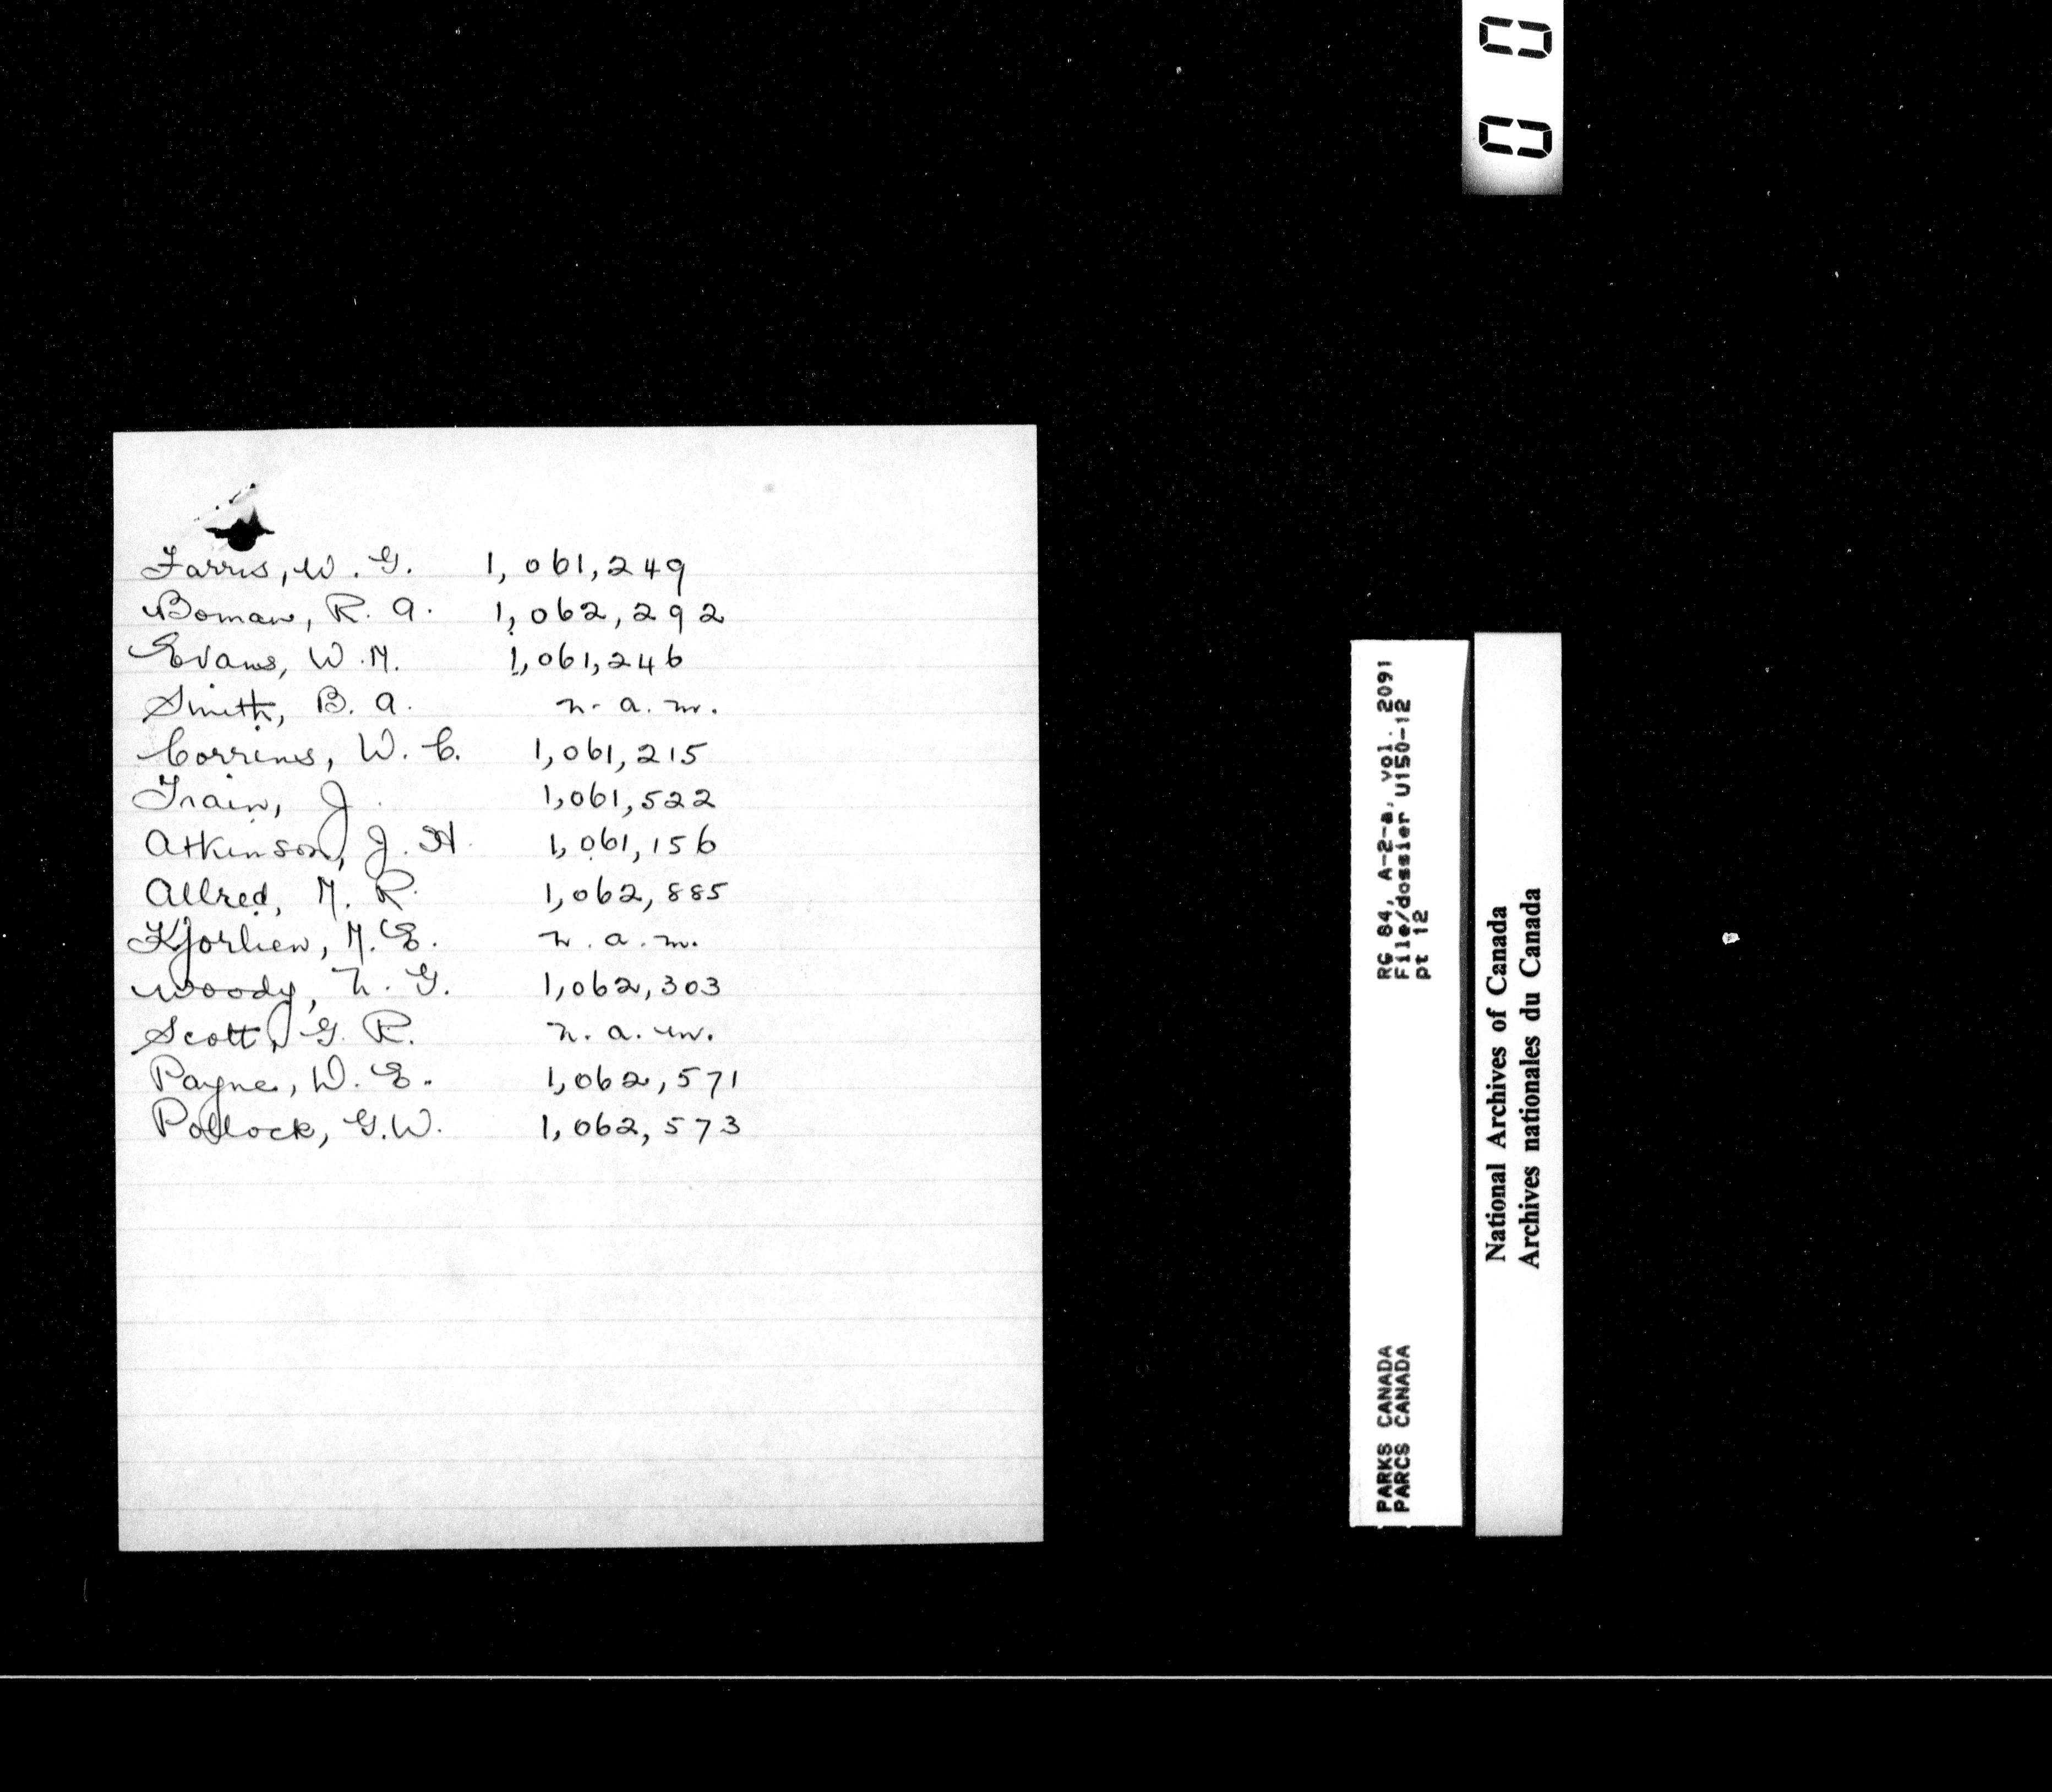 Farris, W. G. 1,061,249
Boman, R. A. 1,062,292
Evans, W. M. 1,061,246
Smith, B. A. n. a. m.
Corrins, W. C. 1,061,215
Train, J. 1,061,522
Atkinson, J. H. 1,061,156
Allred, M. R. 1,062,885
Kjorlien, M. E. n. a. m.
Woody, N. G. 1,062,303
Scott, G. R. n. a. m.
Payne, W. E. 1,062,571
Pollock, G. W. 1,062,573
0 0
RG 84, A-2-a, vol. 2091
File/dossier U150-12
pt 12
PARKS CANADA
PARCS CANADA
National Archives of Canada
Archives nationales du Canada